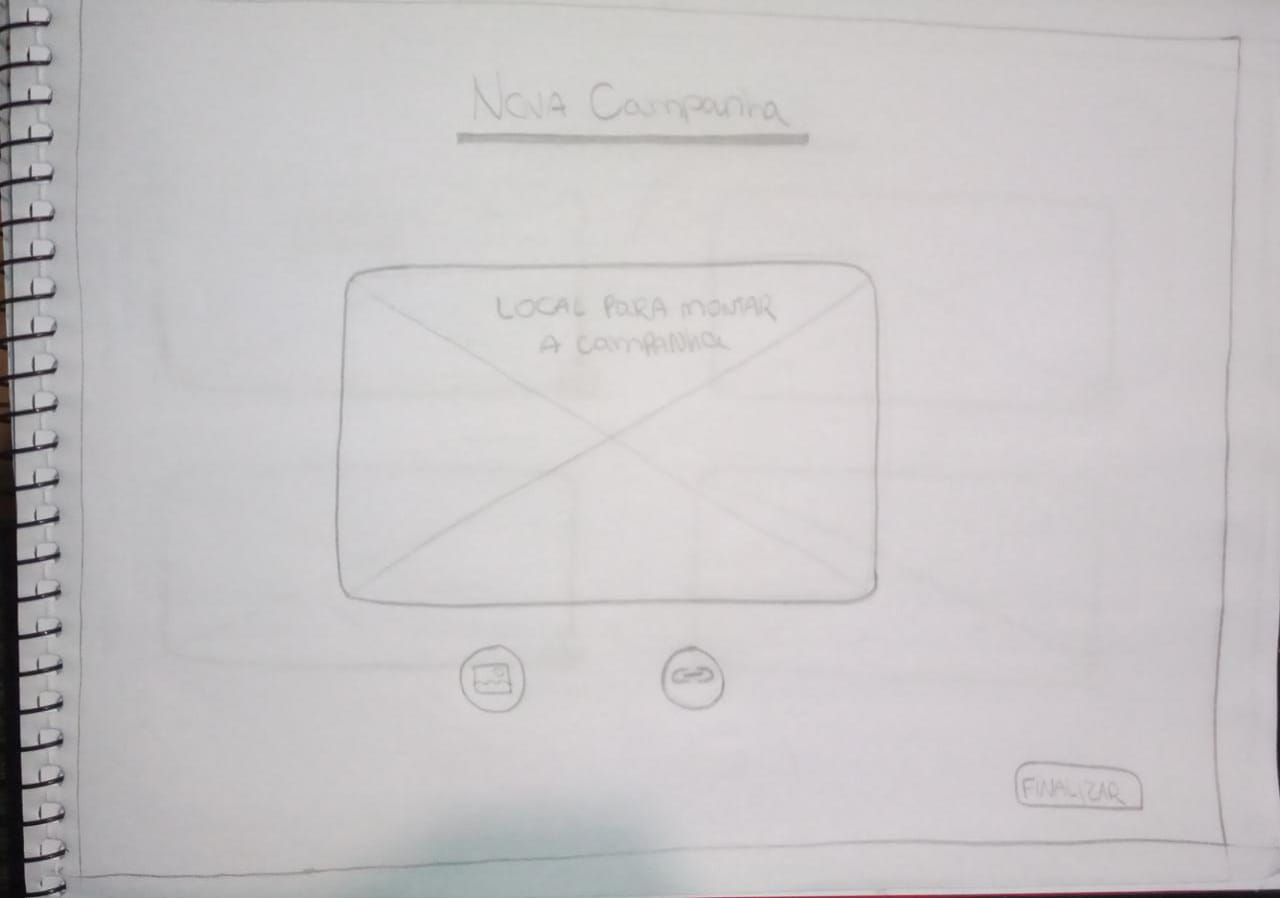 Nova Campanha
LOCAL PARA MONTAR
A CAMPANHA
FINALIZAR